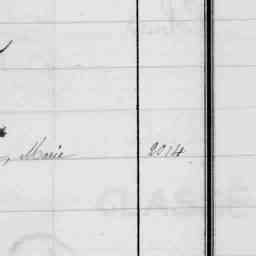 , Marie 2014